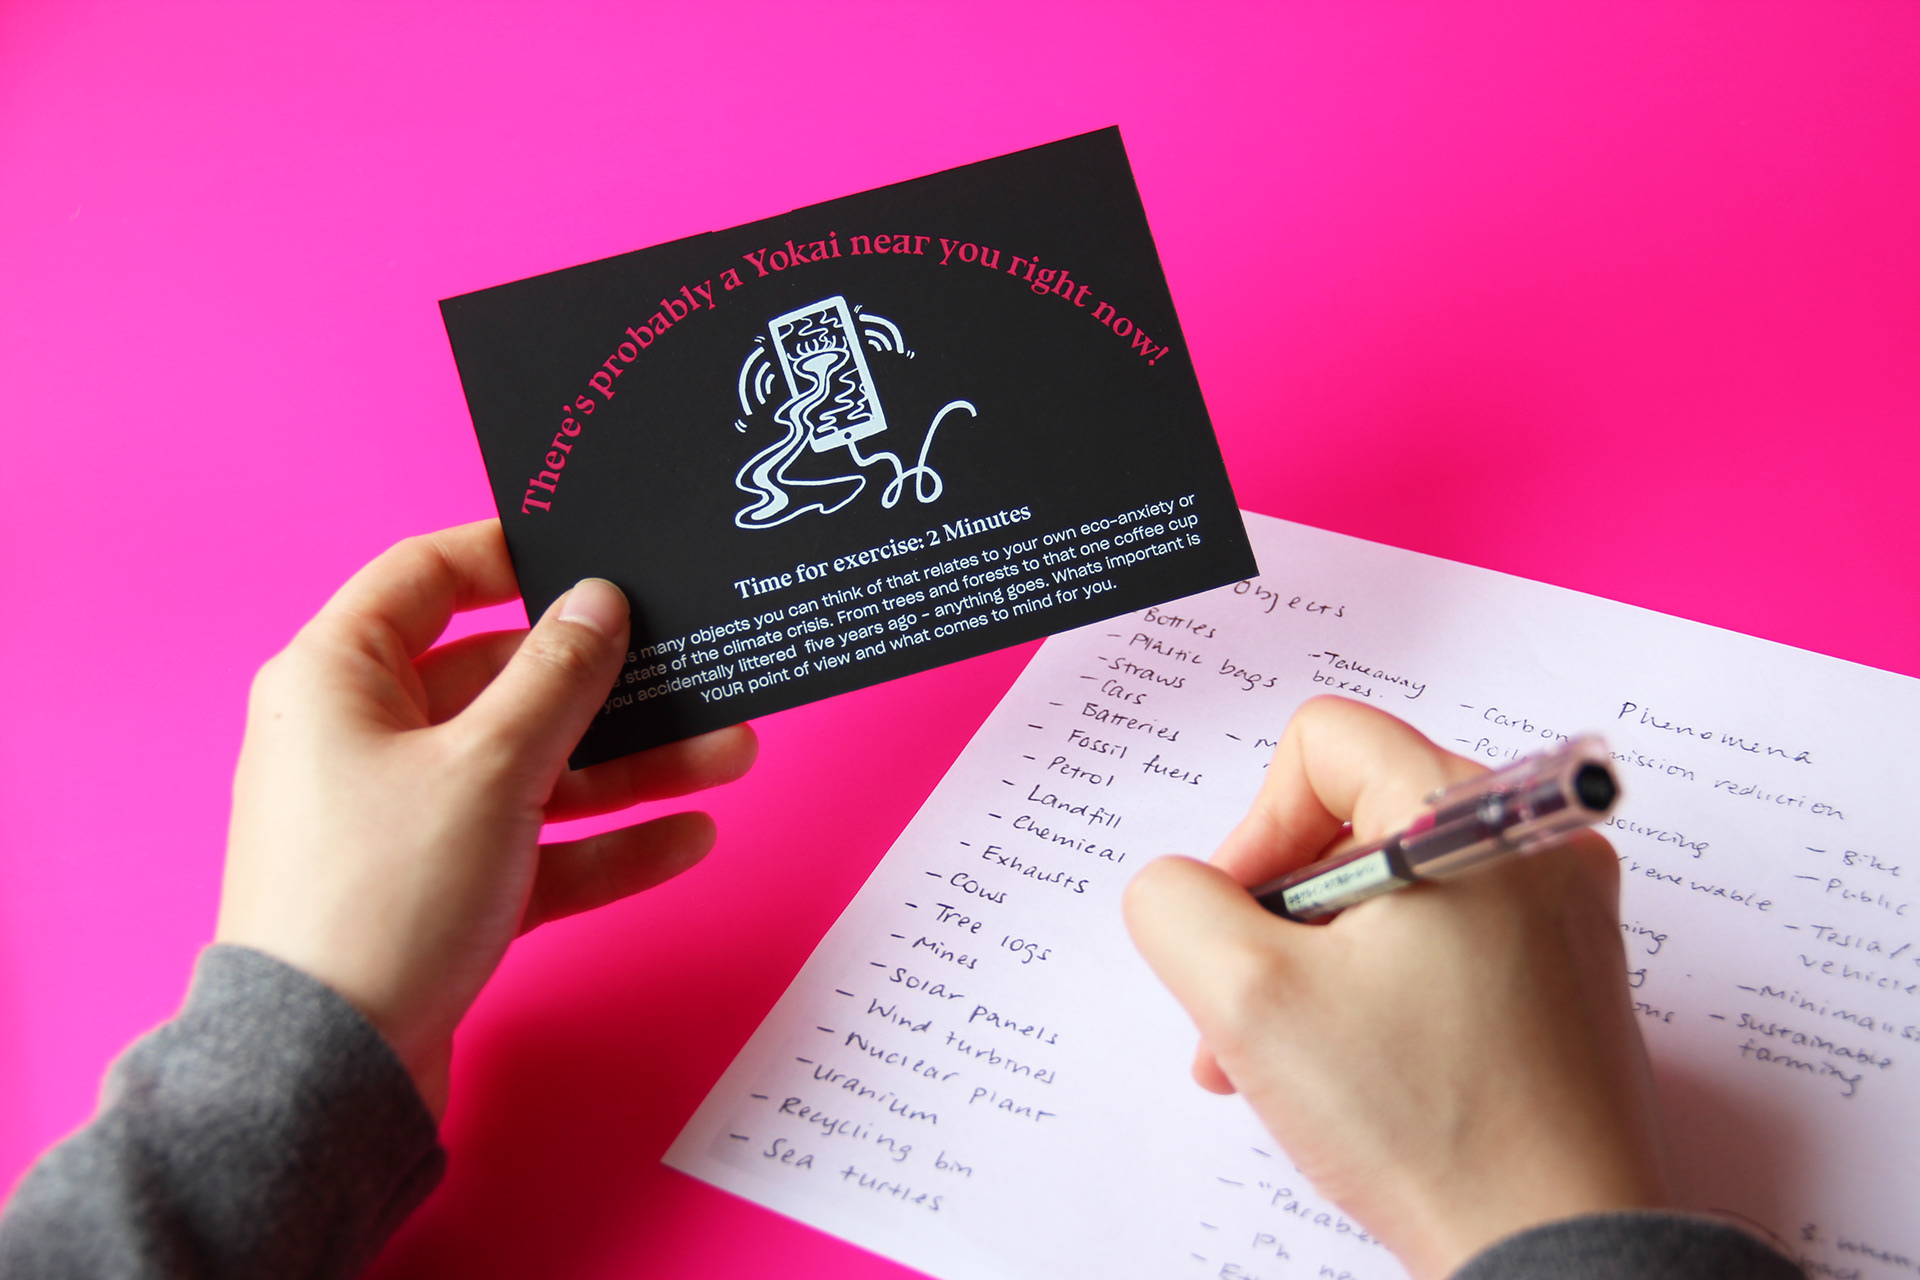 There's probably a Yokai near you right now!
Time for exercise: 2 Minutes
many objects you can think of that relates to your own eco-anxiety or
state of the climate crisis. From trees and forests to that one coffee cup
you accidentally littered five years ago - anything goes. Whats important is
YOUR point of view and what comes to mind for you.
Objects
- Bottles
- Plastic bags
- Straws
- Cars
- Batteries
- Fossil fuels
- Petrol
- Landfill
- Chemical
- Exhausts
- Cows
- Tree logs
- Mines
- Solar panels
- Wind turbines
- Nuclear plant
- Uranium
- Recycling bin
- Sea turtles
- Takeaway
boxes.
Phenomena
- Carbon emission reduction
sourcing
renewable
- Bike
- Public
- Tesla /
vehicle
- Sustainable
farming